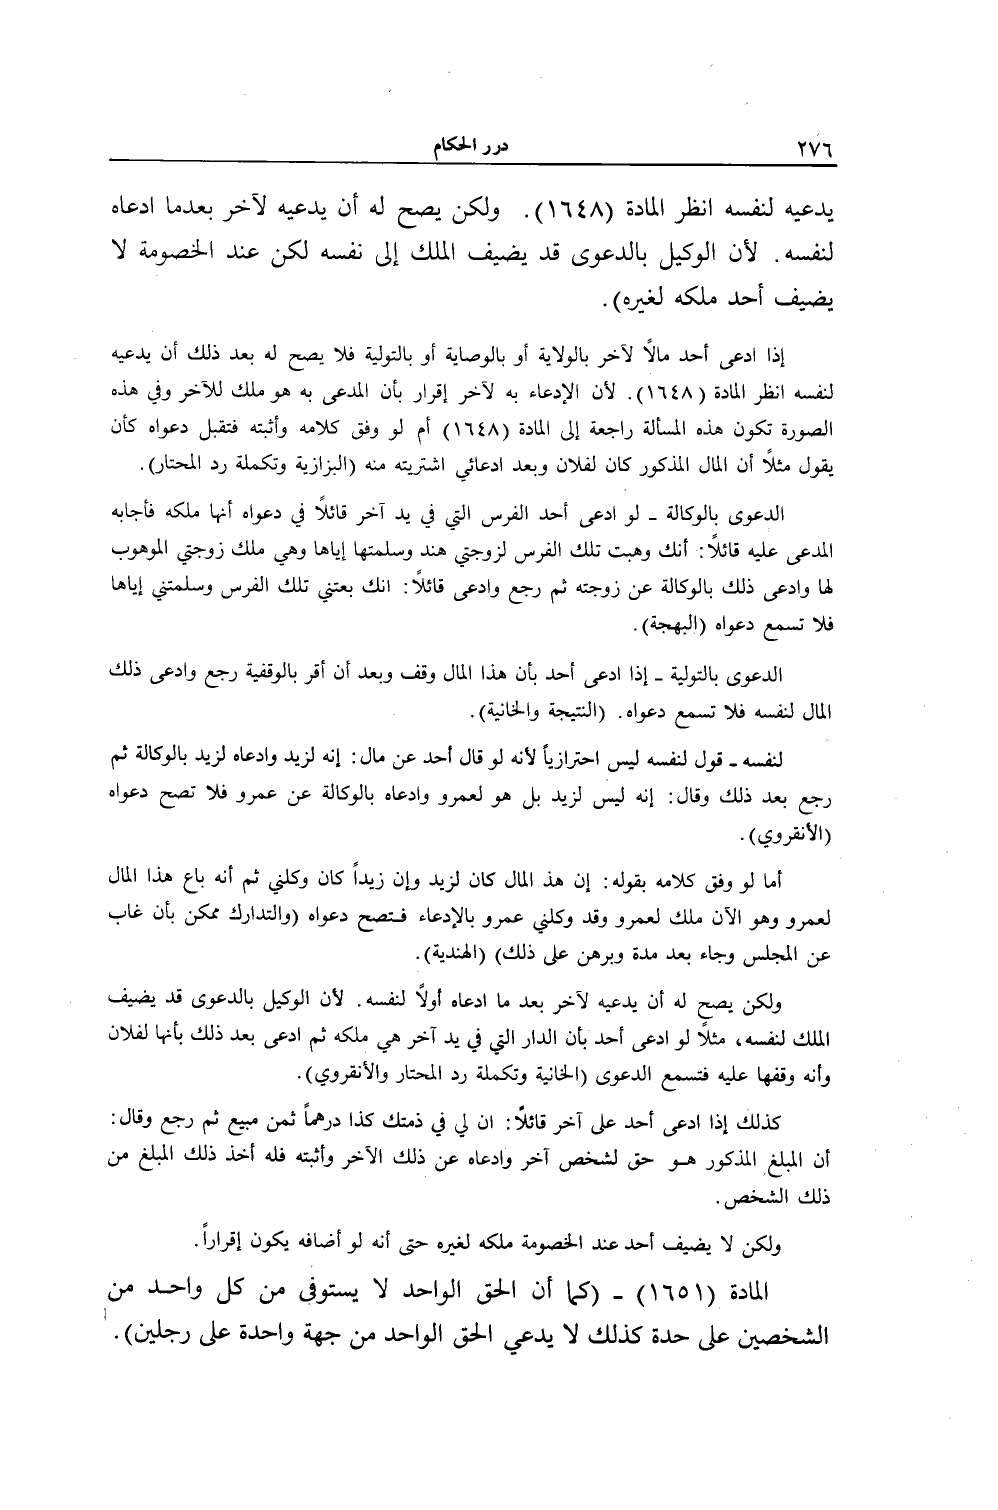 ٢٧٦
درر الحكام
يدعيه لنفسه انظر المادة (١٦٤٨). ولكن يصح له أن يدعيه لآخر بعدما ادعاه
لنفسه. لأن الوكيل بالدعوى قد يضيف الملك إلى نفسه لكن عند الخصومة لا
يضيف أحد ملكه لغيره).
إذا ادعى أحد مالاً لآخر بالولاية أو بالوصاية أو بالتولية فلا يصح له بعد ذلك أن يدعيه
لنفسه انظر المادة (١٦٤٨). لأن الإدعاء به لآخر إقرار بأن المدعى به هو ملك للآخر وفي هذه
الصورة تكون هذه المسألة راجعة إلى المادة (١٦٤٨) أم لو وفق كلامه وأثبته فتقبل دعواه كأن
يقول مثلاً أن المال المذكور كان لفلان وبعد ادعائي اشتريته منه (البزازية وتكملة رد المحتار).
الدعوى بالوكالة ـ لو ادعى أحد الفرس التي في يد آخر قائلاً في دعواه أنها ملكه فأجابه
المدعى عليه قائلاً: أنك وهبت تلك الفرس لزوجتي هند وسلمتها إياها وهي ملك زوجتي الموهوب
لها وادعى ذلك بالوكالة عن زوجته ثم رجع وادعى قائلاً: انك بعتني تلك الفرس وسلمتني إياها
فلا تسمع دعواه (البهجة).
الدعوى بالتولية ـ إذا ادعى أحد بأن هذا المال وقف وبعد أن أقر بالوقفية رجع وادعى ذلك
المال لنفسه فلا تسمع دعواه. (النتيجة والخانية).
لنفسه ـ قول لنفسه ليس احترازياً لأنه لو قال أحد عن مال: إنه لزيد وادعاه لزيد بالوكالة ثم
رجع بعد ذلك وقال: إنه ليس لزيد بل هو لعمرو وادعاه بالوكالة عن عمرو فلا تصح دعواه
(الأنقروي).
أما لو وفق كلامه بقوله: إن هذ المال كان لزيد وإن زيداً كان وكلني ثم أنه باع هذا المال
لعمرو وهو الآن ملك لعمرو وقد وكلني عمرو بالإدعاء فتصح دعواه (والتدارك ممكن بأن غاب
عن المجلس وجاء بعد مدة وبرهن على ذلك) (الهندية).
ولكن يصح له أن يدعيه لآخر بعد ما ادعاه أولاً لنفسه. لأن الوكيل بالدعوى قد يضيف
الملك لنفسه، مثلاً لو ادعى أحد بأن الدار التي في يد آخر هي ملكه ثم ادعى بعد ذلك بأنها لفلان
وأنه وقفها عليه فتسمع الدعوى (الخانية وتكملة رد المحتار والأنقروي).
كذلك إذا ادعى أحد على آخر قائلاً: ان لي في ذمتك كذا درهماً ثمن مبيع ثم رجع وقال:
أن المبلغ المذكور هو حق لشخص آخر وادعاه عن ذلك الآخر وأثبته فله أخذ ذلك المبلغ من
ذلك الشخص.
ولكن لا يضيف أحد عند الخصومة ملكه لغيره حتى أنه لو أضافه يكون إقراراً.
المادة (١٦٥١) ـ (كما أن الحق الواحد لا يستوفى من كل واحد من
الشخصين على حدة كذلك لا يدعي الحق الواحد من جهة واحدة على رجلين).